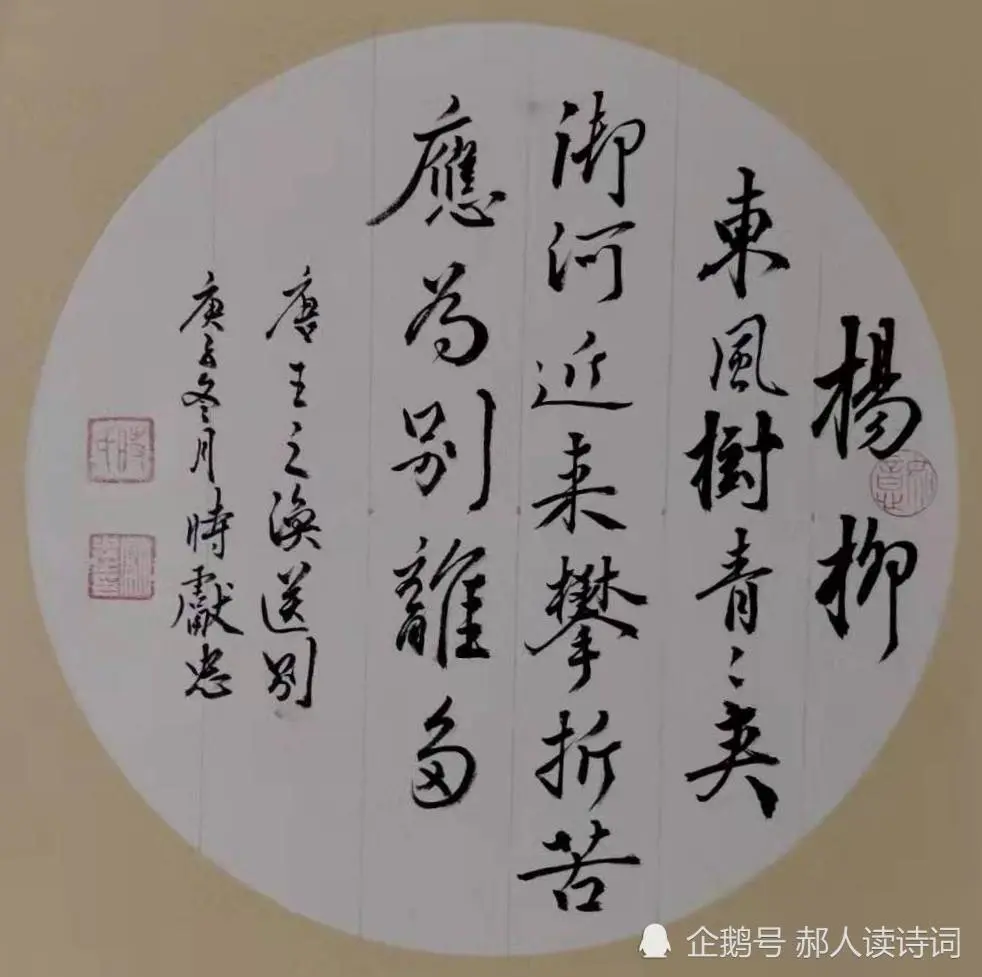 楊柳
東風樹青〻夾
御河近来攀折苦
應為别離多
唐王之渙送别
庚子冬月時獻忠
企鹅号 郝人读诗词